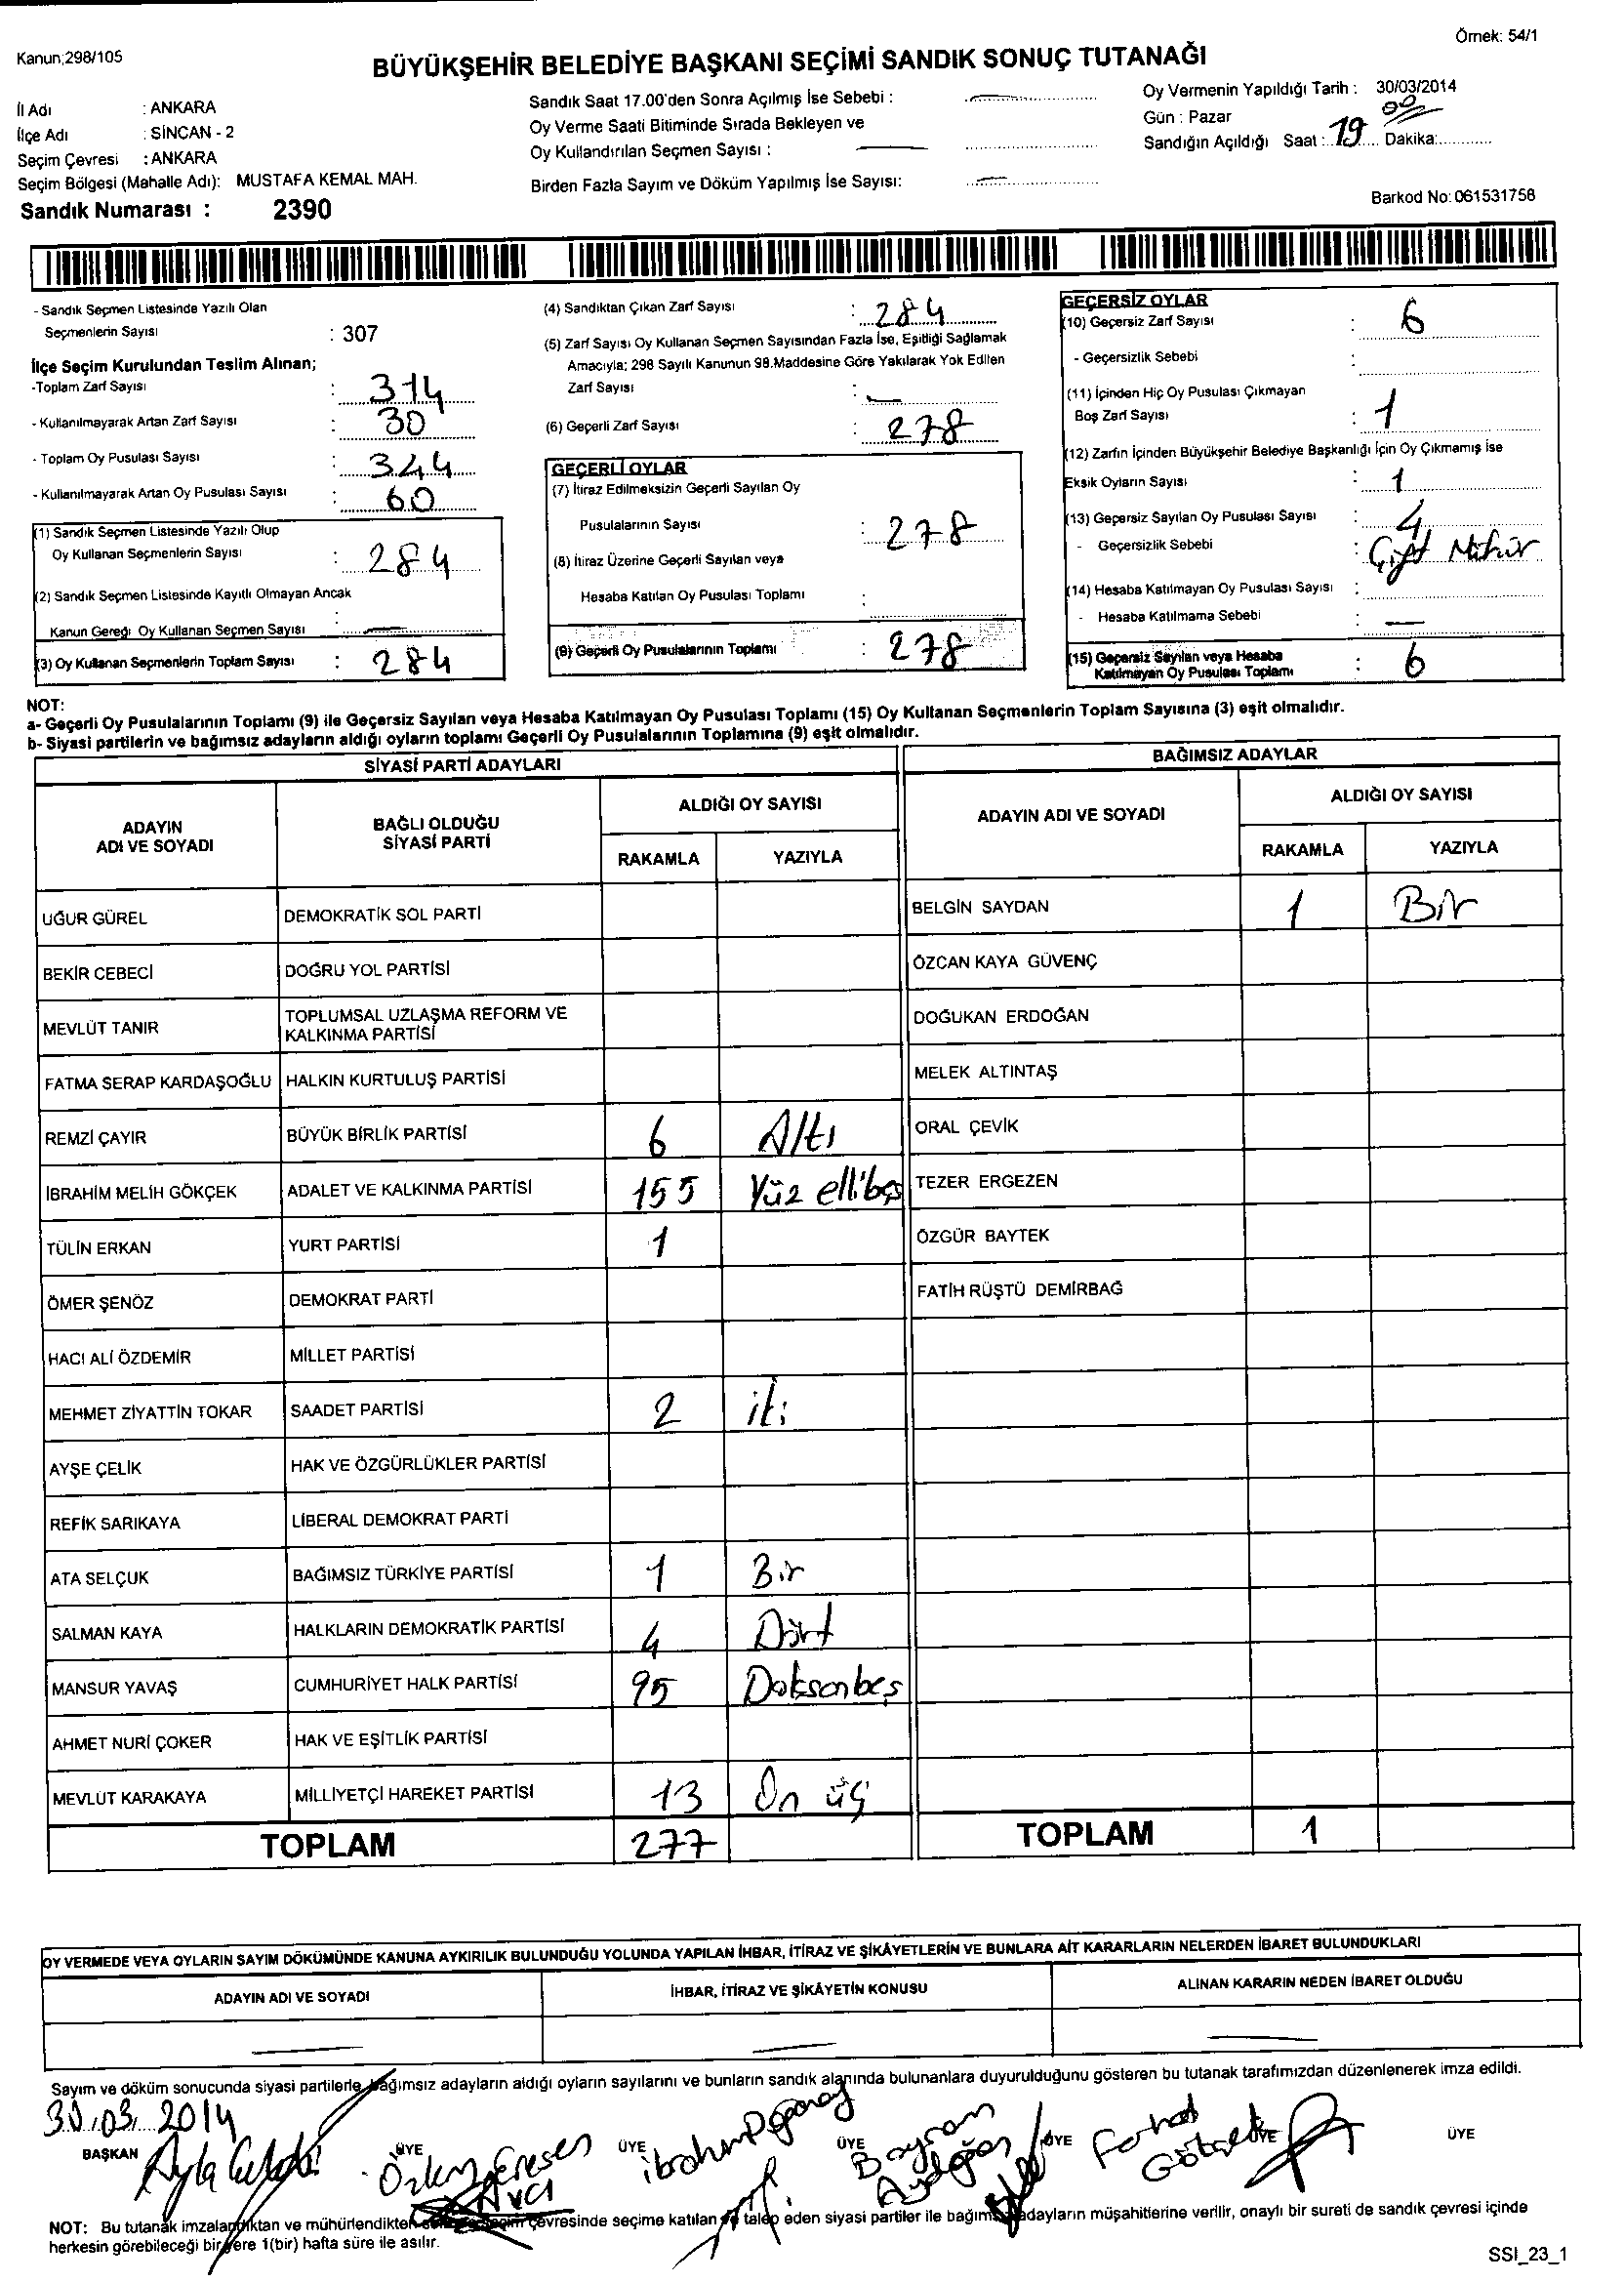 Örnek: 54/1
Kanun;298/105
BÜYÜKŞEHİR BELEDİYE BAŞKANI SEÇİMİ SANDIK SONUÇ TUTANAĞI
İl Adı : ANKARA
İlçe Adı : SİNCAN - 2
Seçim Çevresi : ANKARA
Seçim Bölgesi (Mahalle Adı): MUSTAFA KEMAL MAH.
Sandık Numarası : 2390
Sandık Saat 17.00'den Sonra Açılmış İse Sebebi :
Oy Verme Saati Bitiminde Sırada Bekleyen ve
Oy Kullandırılan Seçmen Sayısı :
Birden Fazla Sayım ve Döküm Yapılmış İse Sayısı:
Oy Vermenin Yapıldığı Tarih : 30/03/2014
Gün : Pazar
Sandığın Açıldığı Saat : 19 Dakika: 00
Barkod No: 061531758
- Sandık Seçmen Listesinde Yazılı Olan
Seçmenlerin Sayısı : 307
İlçe Seçim Kurulundan Teslim Alınan;
-Toplam Zarf Sayısı : 314
- Kullanılmayarak Artan Zarf Sayısı : 30
- Toplam Oy Pusulası Sayısı : 344
- Kullanılmayarak Artan Oy Pusulası Sayısı : 60
(1) Sandık Seçmen Listesinde Yazılı Olup
Oy Kullanan Seçmenlerin Sayısı : 284
(2) Sandık Seçmen Listesinde Kayıtlı Olmayan Ancak
Kanun Gereği Oy Kullanan Seçmen Sayısı : —
(3) Oy Kullanan Seçmenlerin Toplam Sayısı : 284
(4) Sandıktan Çıkan Zarf Sayısı : 284
(5) Zarf Sayısı Oy Kullanan Seçmen Sayısından Fazla İse, Eşitliği Sağlamak
Amacıyla; 298 Sayılı Kanunun 98.Maddesine Göre Yakılarak Yok Edilen
Zarf Sayısı : —
(6) Geçerli Zarf Sayısı : 278
GEÇERLİ OYLAR
(7) İtiraz Edilmeksizin Geçerli Sayılan Oy
Pusulalarının Sayısı : 278
(8) İtiraz Üzerine Geçerli Sayılan veya
Hesaba Katılan Oy Pusulası Toplamı :
(9) Geçerli Oy Pusulalarının Toplamı : 278
GEÇERSİZ OYLAR
(10) Geçersiz Zarf Sayısı : 6
- Geçersizlik Sebebi :
(11) İçinden Hiç Oy Pusulası Çıkmayan
Boş Zarf Sayısı : 1
(12) Zarfın İçinden Büyükşehir Belediye Başkanlığı İçin Oy Çıkmamış İse
Eksik Oyların Sayısı : 1
(13) Geçersiz Sayılan Oy Pusulası Sayısı : 4
- Geçersizlik Sebebi : Çift Mühür
(14) Hesaba Katılmayan Oy Pusulası Sayısı :
- Hesaba Katılmama Sebebi : —
(15) Geçersiz Sayılan veya Hesaba
Katılmayan Oy Pusulası Toplamı : 6
NOT:
a- Geçerli Oy Pusulalarının Toplamı (9) ile Geçersiz Sayılan veya Hesaba Katılmayan Oy Pusulası Toplamı (15) Oy Kullanan Seçmenlerin Toplam Sayısına (3) eşit olmalıdır.
b- Siyasi partilerin ve bağımsız adayların aldığı oyların toplamı Geçerli Oy Pusulalarının Toplamına (9) eşit olmalıdır.
SİYASİ PARTİ ADAYLARI
ADAYIN ADI VE SOYADI BAĞLI OLDUĞU SİYASİ PARTİ ALDIĞI OY SAYISI
RAKAMLA YAZIYLA
UĞUR GÜREL DEMOKRATİK SOL PARTİ
BEKİR CEBECİ DOĞRU YOL PARTİSİ
MEVLÜT TANIR TOPLUMSAL UZLAŞMA REFORM VE
KALKINMA PARTİSİ
FATMA SERAP KARDAŞOĞLU HALKIN KURTULUŞ PARTİSİ
REMZİ ÇAYIR BÜYÜK BİRLİK PARTİSİ 6 Altı
İBRAHİM MELİH GÖKÇEK ADALET VE KALKINMA PARTİSİ 155 Yüz ellibeş
TÜLİN ERKAN YURT PARTİSİ 1
ÖMER ŞENÖZ DEMOKRAT PARTİ
HACI ALİ ÖZDEMİR MİLLET PARTİSİ
MEHMET ZİYATTİN TOKAR SAADET PARTİSİ 2 iki
AYŞE ÇELİK HAK VE ÖZGÜRLÜKLER PARTİSİ
REFİK SARIKAYA LİBERAL DEMOKRAT PARTİ
ATA SELÇUK BAĞIMSIZ TÜRKİYE PARTİSİ 1 Bir
SALMAN KAYA HALKLARIN DEMOKRATİK PARTİSİ 4 Dört
MANSUR YAVAŞ CUMHURİYET HALK PARTİSİ 95 Doksanbeş
AHMET NURİ ÇOKER HAK VE EŞİTLİK PARTİSİ
MEVLÜT KARAKAYA MİLLİYETÇİ HAREKET PARTİSİ 13 On üç
TOPLAM 277
BAĞIMSIZ ADAYLAR
ADAYIN ADI VE SOYADI ALDIĞI OY SAYISI
RAKAMLA YAZIYLA
BELGİN SAYDAN 1 Bir
ÖZCAN KAYA GÜVENÇ
DOĞUKAN ERDOĞAN
MELEK ALTINTAŞ
ORAL ÇEVİK
TEZER ERGEZEN
ÖZGÜR BAYTEK
FATİH RÜŞTÜ DEMİRBAĞ
TOPLAM 1
OY VERMEDE VEYA OYLARIN SAYIM DÖKÜMÜNDE KANUNA AYKIRILIK BULUNDUĞU YOLUNDA YAPILAN İHBAR, İTİRAZ VE ŞİKÂYETLERİN VE BUNLARA AİT KARARLARIN NELERDEN İBARET BULUNDUKLARI
ADAYIN ADI VE SOYADI İHBAR, İTİRAZ VE ŞİKÂYETİN KONUSU ALINAN KARARIN NEDEN İBARET OLDUĞU
Sayım ve döküm sonucunda siyasi partilerle, bağımsız adayların aldığı oyların sayılarını ve bunların sandık alanında bulunanlara duyurulduğunu gösteren bu tutanak tarafımızdan düzenlenerek imza edildi.
30.03.2014
BAŞKAN ÜYE ÜYE ÜYE ÜYE ÜYE ÜYE
Ayla Özlem Avcı İbrahim Bayram Aydoğan
NOT: Bu tutanak imzalandıktan ve mühürlendikten çevresinde seçime katılan ve talep eden siyasi partiler ile bağımsız adayların müşahitlerine verilir, onaylı bir sureti de sandık çevresi içinde
herkesin görebileceği bir yere 1(bir) hafta süre ile asılır.
SSI_23_1